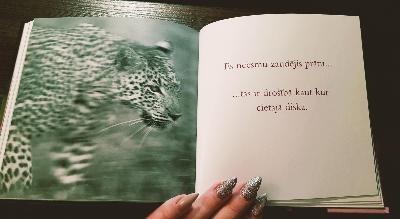 Es neesmu zaudējis prātu...
...tas ir drošībā kaut kur
cietajā diskā.